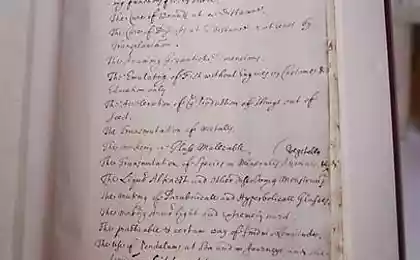 The Cure of Wounds at a Distance.
The Cure of Diseases at a Distance or at least by
Transplantation.
The Attaining Gigantick Dimensions.
The Emulating of Fish without Engines by Custome &
Education only.
The Acceleration of ye Production of things out of
Seed.
The Transmutation of Metalls.
The making of Glass Maleable.
(Vegetables
The Transmutation of Species in Mineralls, Animals,
The Liquid Alkaest and other dissolving Menstruums
The making of Parabolicall and Hyperbolicall Glasses.
The making Armor light and extremely hard.
The practicable & certain way of finding Longitudes.
The use of Pendulums at Sea and in Journeys, and